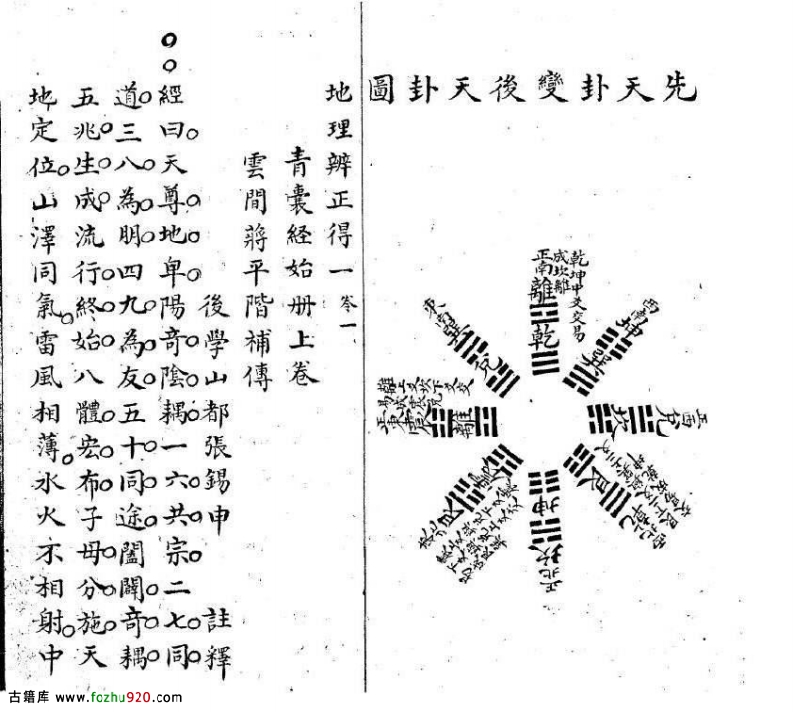 先天卦變後天卦圖
乾坤中爻交易
成坎離
正南
離
乾
西南
坤
巽
正西
兌
坎
艮
正北
坎
坤
艮
離
東南
巽
兌
地理辨正得一 卷一
青囊經始册上卷
雲間蔣平階補傳
後學山都張錫申 註釋
經曰天尊地卑陽奇陰耦一六共宗二七同
道三八為朋四九為友五十同途闔闢奇耦
五兆生成流行終始八體宏布子母分施天
地定位山澤同氣雷風相薄水火不相射中
古籍库 www.fozhu920.com